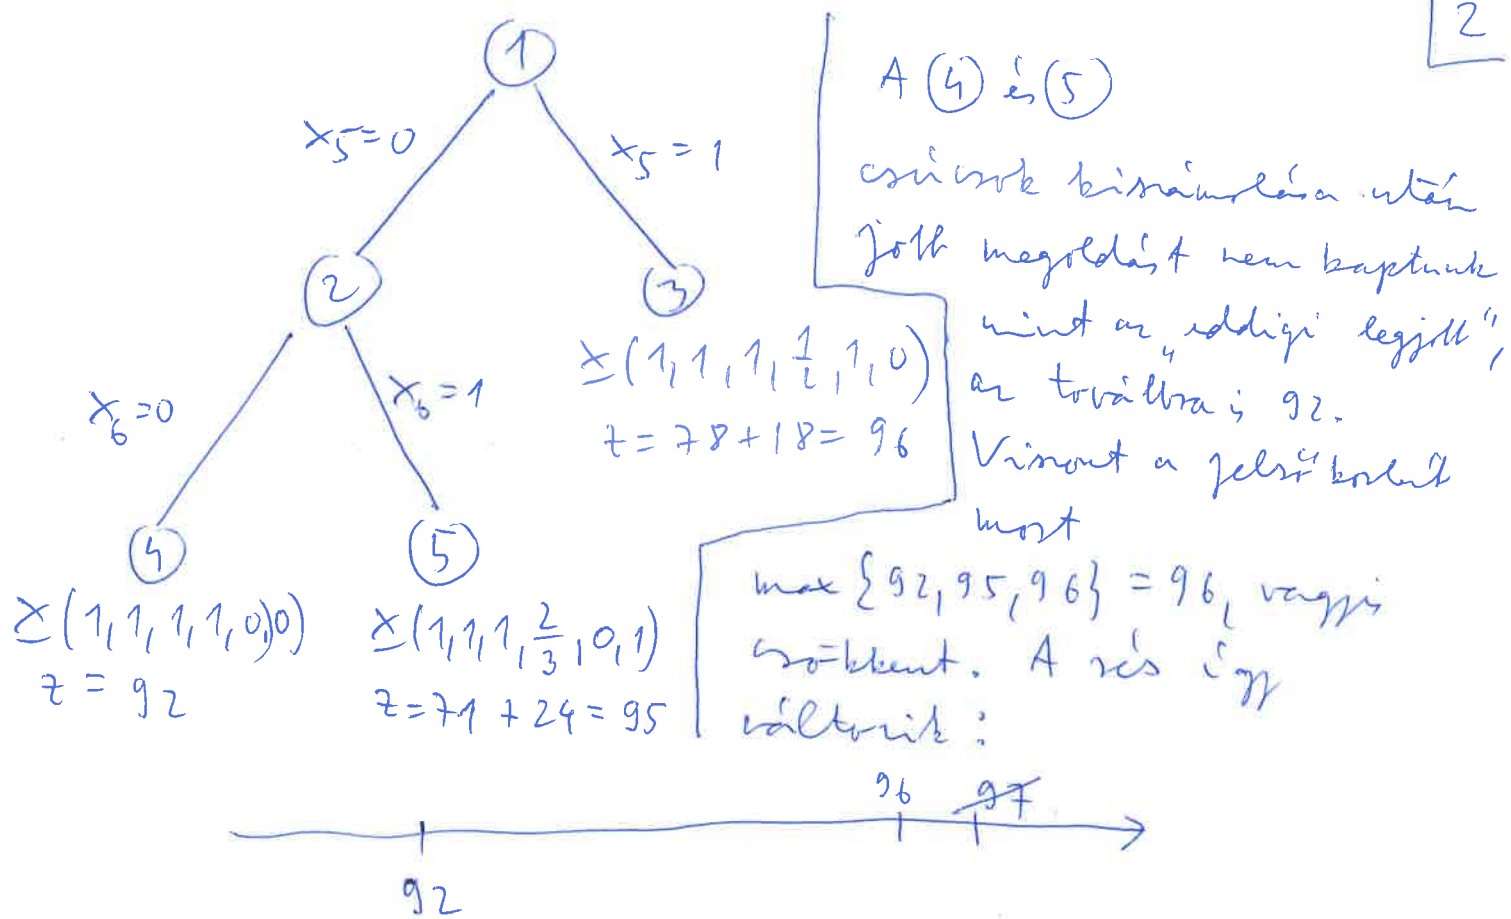 2
1
x₅=0
x₅=1
2
3
x(1,1,1,1/2,1,0)
z=78+18=96
x₆=0
x₆=1
4
5
x(1,1,1,1,0,0)
z=92
x(1,1,1,2/3,0,1)
z=71+24=95
A ④ és ⑤
csúcsok kiszámolása után
jobb megoldást nem kaptunk
mint az „eddigi legjobb”,
az továbbra is 92.
Viszont a felső korlát
most
max{92,95,96}=96, vagyis
csökkent. A rés így
változik:
96 97
92